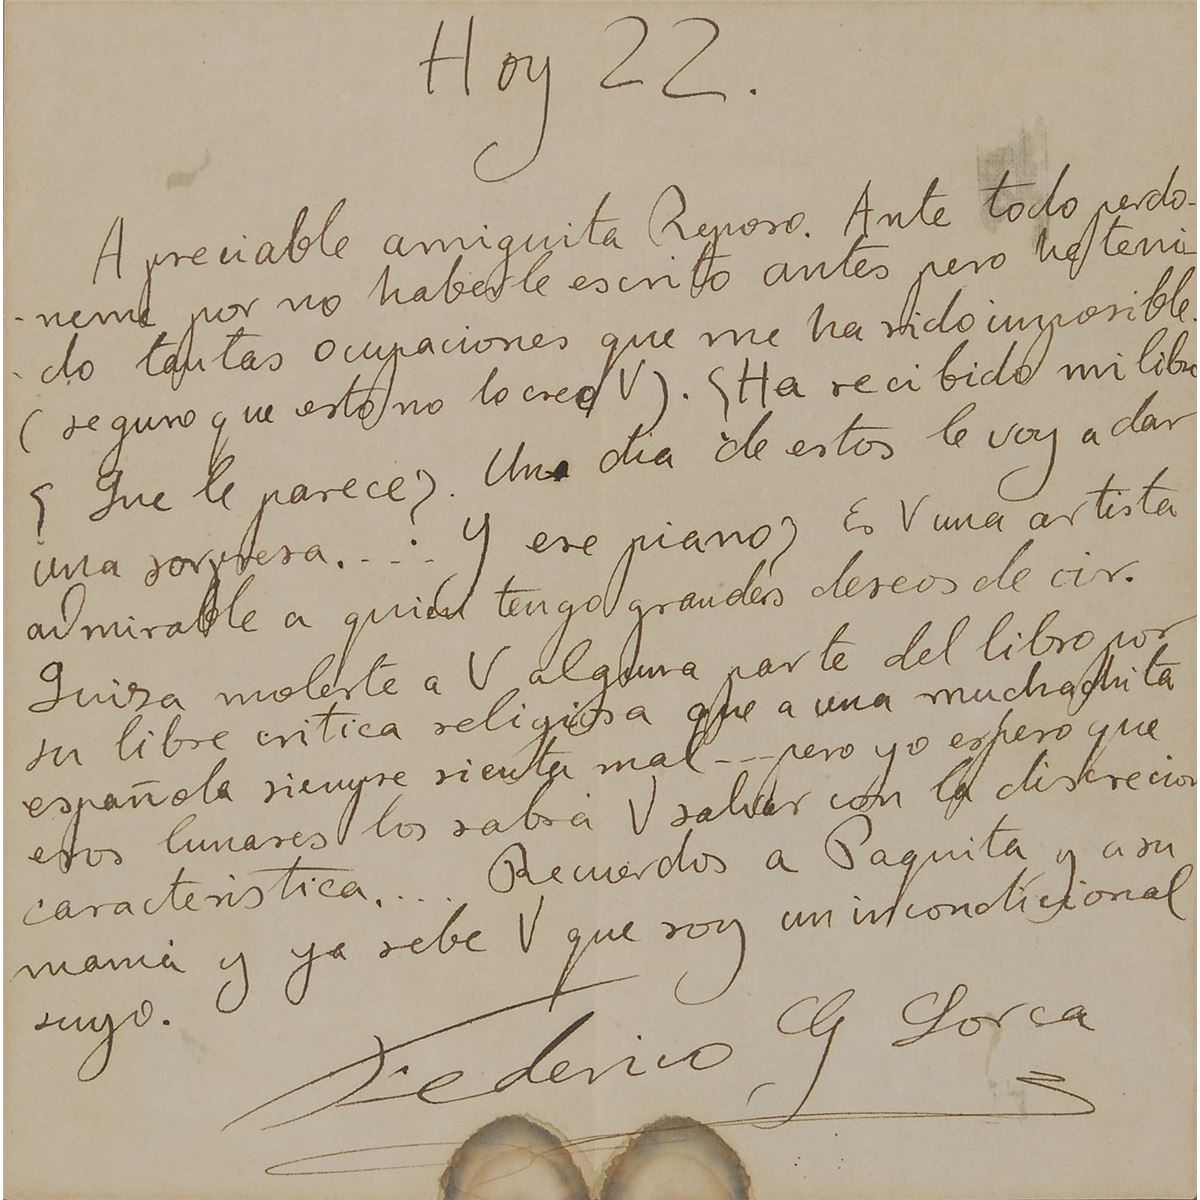 Hoy 22.
Apreciable amiguita Reposo. Ante todo perdo-
-neme por no haberle escrito antes pero he teni-
-do tantas ocupaciones que me ha sido imposible.
(seguro que esto no lo cree V). ¿Ha recibido mi libro
¿Que le parece?. Una dia de estos le voy a dar
una sorpresa....: Y ese piano? Es V una artista
admirable a quien tengo grandes deseos de oir.
Quiza moleste a V alguna parte del libro por
su libre critica religiosa que a una muchachita
española siempre sienta mal---pero yo espero que
esos lunares los sabrá V salvar con la discrecion
caracteristica.... Recuerdos a Paquita y a su
mamá y ya sebe V que soy un incondicional
suyo.
Federico G Lorca